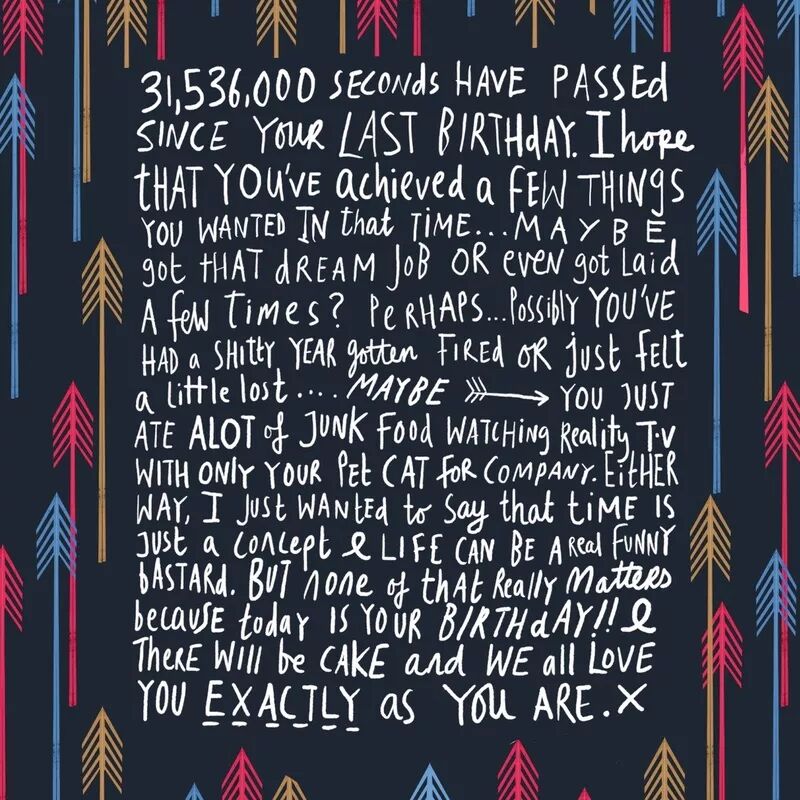 31,536,000 SECONDS HAVE PASSED
SINCE YOUR LAST BIRTHDAY. I hope
tHAT YOU'VE achieved a FEW THINGS
YOU WANTED IN that TIME...MAYBE
got tHAT dREAM JOB OR even got Laid
A few Times? PeRHAPS...Possibly YOU'VE
HAD a SHitty YEAR gotten FIRED OR just felt
a little lost.... MAYBE → YOU JUST
ATE ALOT of JUNK Food WATCHING Reality T.V
WITH ONLY YOUR Pet CAT for COMPANY. EitHER
WAY, I Just WANted to Say that tiME IS
Just a concept & LIFE CAN BE A Real FUNNY
bASTARd. BUT none of tHAt Really Matters
because today IS YOUR BIRTHdAY!! &
THERE WILL be CAKE and WE all LOVE
YOU EXACTLY as YOU ARE.X